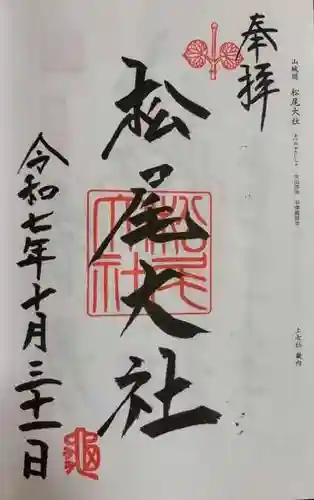 山城國 松尾大社
奉拝
松尾大社
松尾大社
令和七年十月三十一日
亀